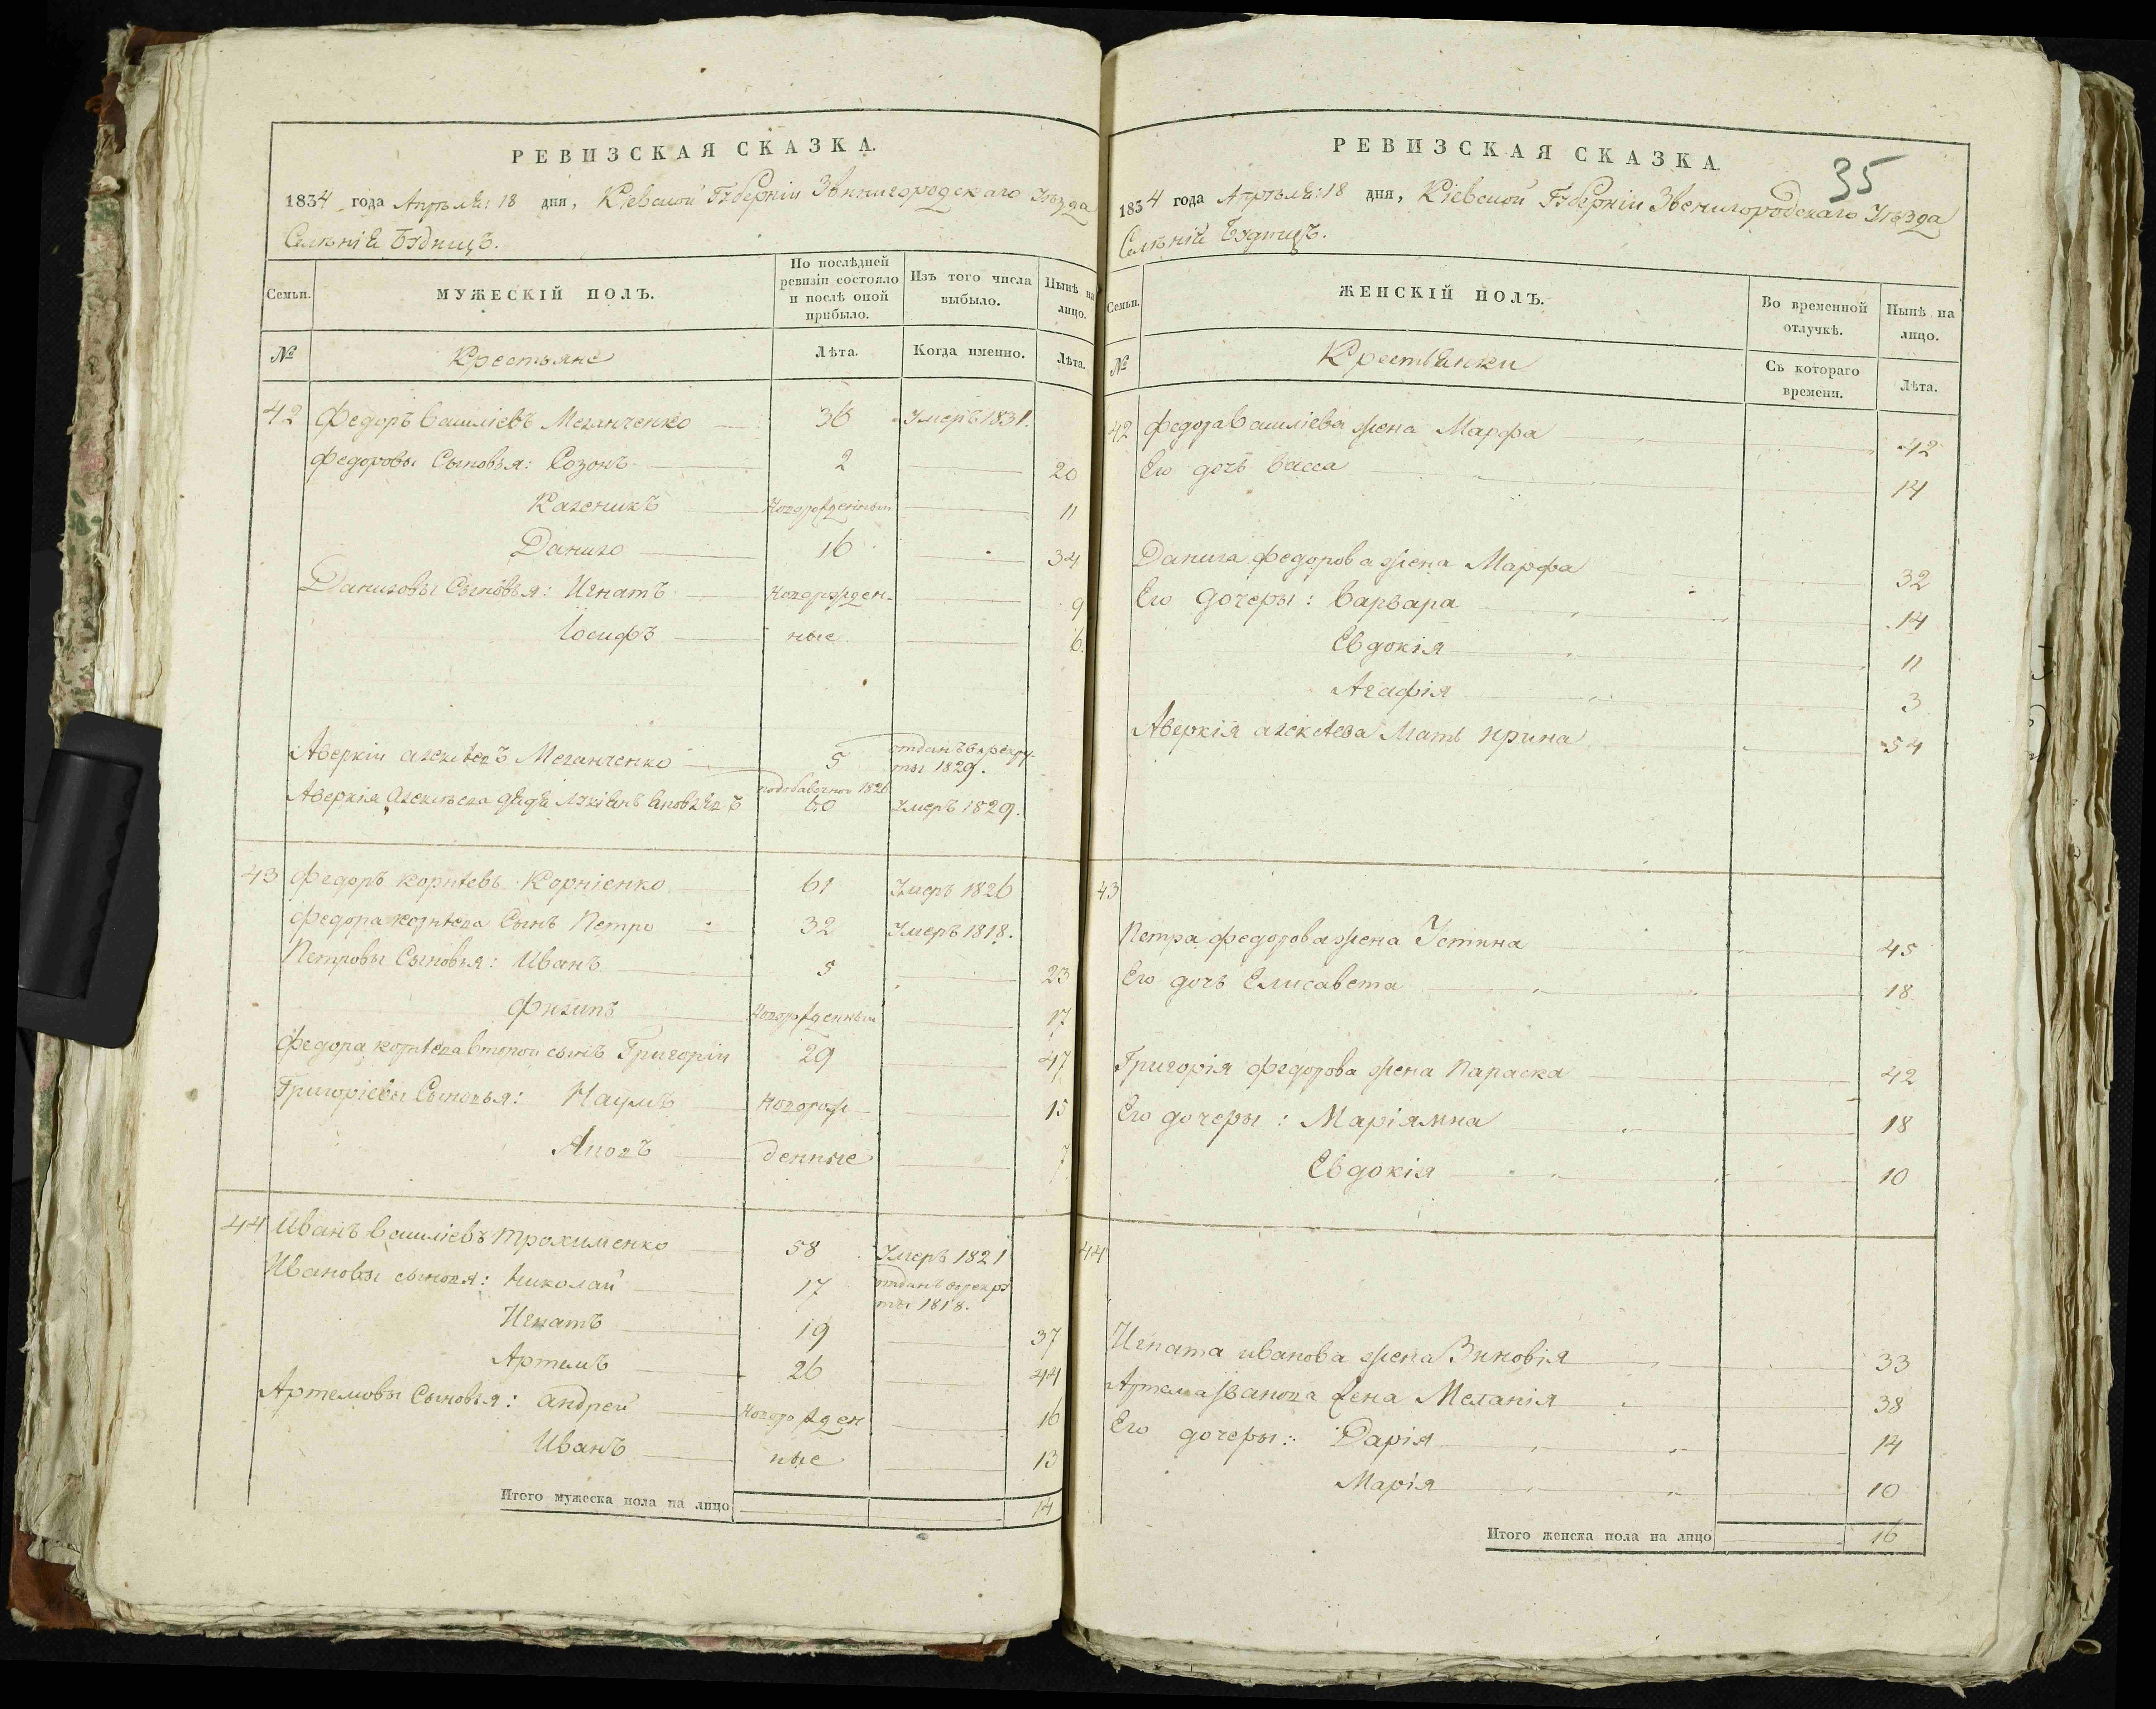 РЕВИЗСКАЯ СКАЗКА.
1834 года Апрѣля: 18 дня, Кіевской Губерніи Звенигородскаго Уѣзда
Селѣнія Будищъ.
Семьи.
МУЖЕСКІЙ ПОЛЪ.
По послѣдней ревизіи состояло и послѣ оной прибыло.
Изъ того числа выбыло.
Нынѣ на лицо.
№
Крестьяне
Лѣта.
Когда именно.
Лѣта.
42 Федоръ Василіевъ Меланченко 36 Умеръ 1831.
Федоровы Сыновья: Созонъ 2 20
Каленикъ Новорожденный 11
Данило 16 34
Даниловы Сыновья: Игнатъ Новорожден- 9
Іосифъ ные 6.
Аверкій Алексѣевъ Меланченко 5 отданъ в рекру-
ты 1829.
Аверкія Алексѣева дядя 60 Умеръ 1829.
43 Федоръ Корнѣевъ Корніенко 61 Умеръ 1826
Федора Корнѣева Сынъ Петро 32 Умеръ 1818.
Петровы Сыновья: Иванъ 5 23
Филипъ Новорожденный 17
Федора Корнѣева второй сынъ Григорій 29 47
Григоріевы Сыновья: Наумъ Новорож- 15
денные 7
44 Иванъ Василіевъ Трохименко 58 Умеръ 1821
Ивановы сыновя: Николай 17 отданъ в рекру
ты 1818.
Игнатъ 19 37
Артемъ 26 44
Артемовы Сыновья: Андрей Новорожден 16
Иванъ ные 13
Итого мужеска пола на лицо 14
РЕВИЗСКАЯ СКАЗКА.
35
1834 года Апрѣля: 18 дня, Кіевской Губерніи Звенигородскаго Уѣзда
Селѣній Будищъ.
Семьи.
ЖЕНСКІЙ ПОЛЪ.
Во временной отлучкѣ.
Нынѣ на лицо.
№
Крестьянки
Съ котораго времени.
Лѣта.
42 Федора Василіева жена Марфа 42
Его дочь Васса 14
Данила Федорова жена Марфа 32
Его дочеры: Варвара 14
Евдокія 11
Агафія 3
Аверкія Алексѣева Мать Ирина 54
43
Петра Федорова жена Устина 45
Его дочь Елисавета 18
Григорія Федорова жена Параска 42
Его дочеры: Маріямна 18
Евдокія 10
44
Игната Иванова жена Зиновія 33
Артема Иванова жена Меланія 38
Его дочеры: Дарія 14
Марія 10
Итого женска пола на лицо 16